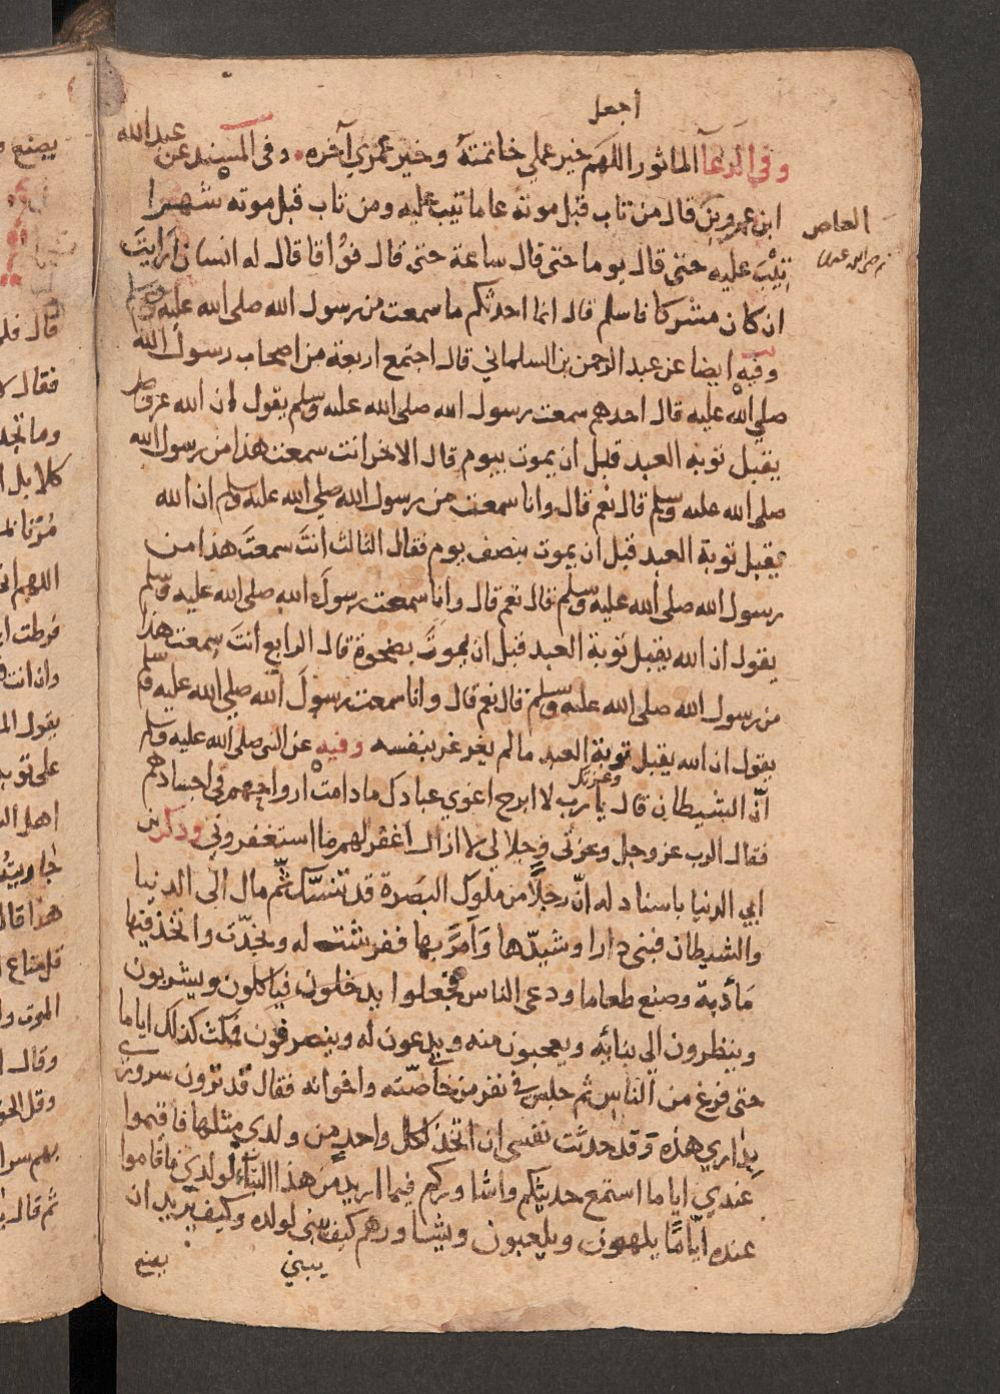 أجعل
وفي الدعآ الماثور اللهم خير عملي خاتمته وخير عمري آخره. وفى المسند عن عبد الله
ابن عمرو بن قال من تاب قبل موته عاما تيب عليه ومن تاب قبل موته شهرا
العاص
تِيْبَ عليه حتى قال يوما حتى قال ساعة حتى قال فوُاقا قال له انسان اَرَايتَ
ان كان مشركا فاسلم قال انما احدثكم ما سمعت من رسول الله صلى الله عليه وسلم
وفيه ايضا عن عبد الرحمن بن السلماني قال اجتمع اربعة من اصحاب رسول الله
صلي الله عليه قال احدهم سمعت رسول الله صلى الله عليه وسلم يقول ان الله عز وجل
يقبل توبة العبد قبل ان يموت بيوم قال الاخر انت سمعت هذا من رسول الله
صلى الله عليه وسلم قال نعم قال وانا سمعت من رسول الله صلي الله عليه وسلم ان الله
يقبل توبة العبد قبل ان يموت بنصف يوم فقال الثالث انتَ سمعتَ هذا من
رسول الله صلى الله عليه وسلم قال نعم قال وانا سمعت رسولَ الله صلى الله عليه وسلم
يقول ان الله يقبل توبة العبد قبل ان يموتَ بضحوة قال الرابع انتَ سمعت هذا
من رسول الله صلى الله عليه وسلم قال نعم قال وانا سمعت رسولَ الله صلي الله عليه وسلم
يقول ان الله يقبل توبة العبد ما لم يغرغر بنفسه وفيه عن النبى صلى الله عليه وسلم
وعزتك
انّ الشيطان قال يا رب لا ابرح اغوي عبادك ما دامت ارواحهم في اجسادهم
فقال الرب عز وجل وعزتى وجلالي لا ازال اغفر لهم ما استغفروني وذكر بن
ابي الدنيا باسناد له انّ رجلًا من ملوك البصرة قد تنسّك ثمّ مال الى الدنيا
والشيطان فبنى دارا وشيدّها وَاَمَرَ بها ففرشت له ونجّدت واتخذ فيها
مَأدبة وصنع طعاما ودعى الناس فجعلوا يدخلون فياكلون ويشربون
وينظرون الي بنائه ويعجبون منه ويدعون له وينصرفون فمكث كذلك اياما
حتى فرغ من الناس ثم جلس في نفر من خاصّته واخوانه فقال قد ترون سروري
بداري هذه وقد حدثت نفسى ان اتخذ لكل واحدٍ من ولدي مثلها فاقيموا
عندي اياما استمع حديثكم واشاوركم فيما اريد من هذا البناء لولدي فاقاموا
عنده ايّامًا يلهون ويلعبون ويشاورهم كيف يبنى لولده وكيف يريد ان
يبني
يصنع